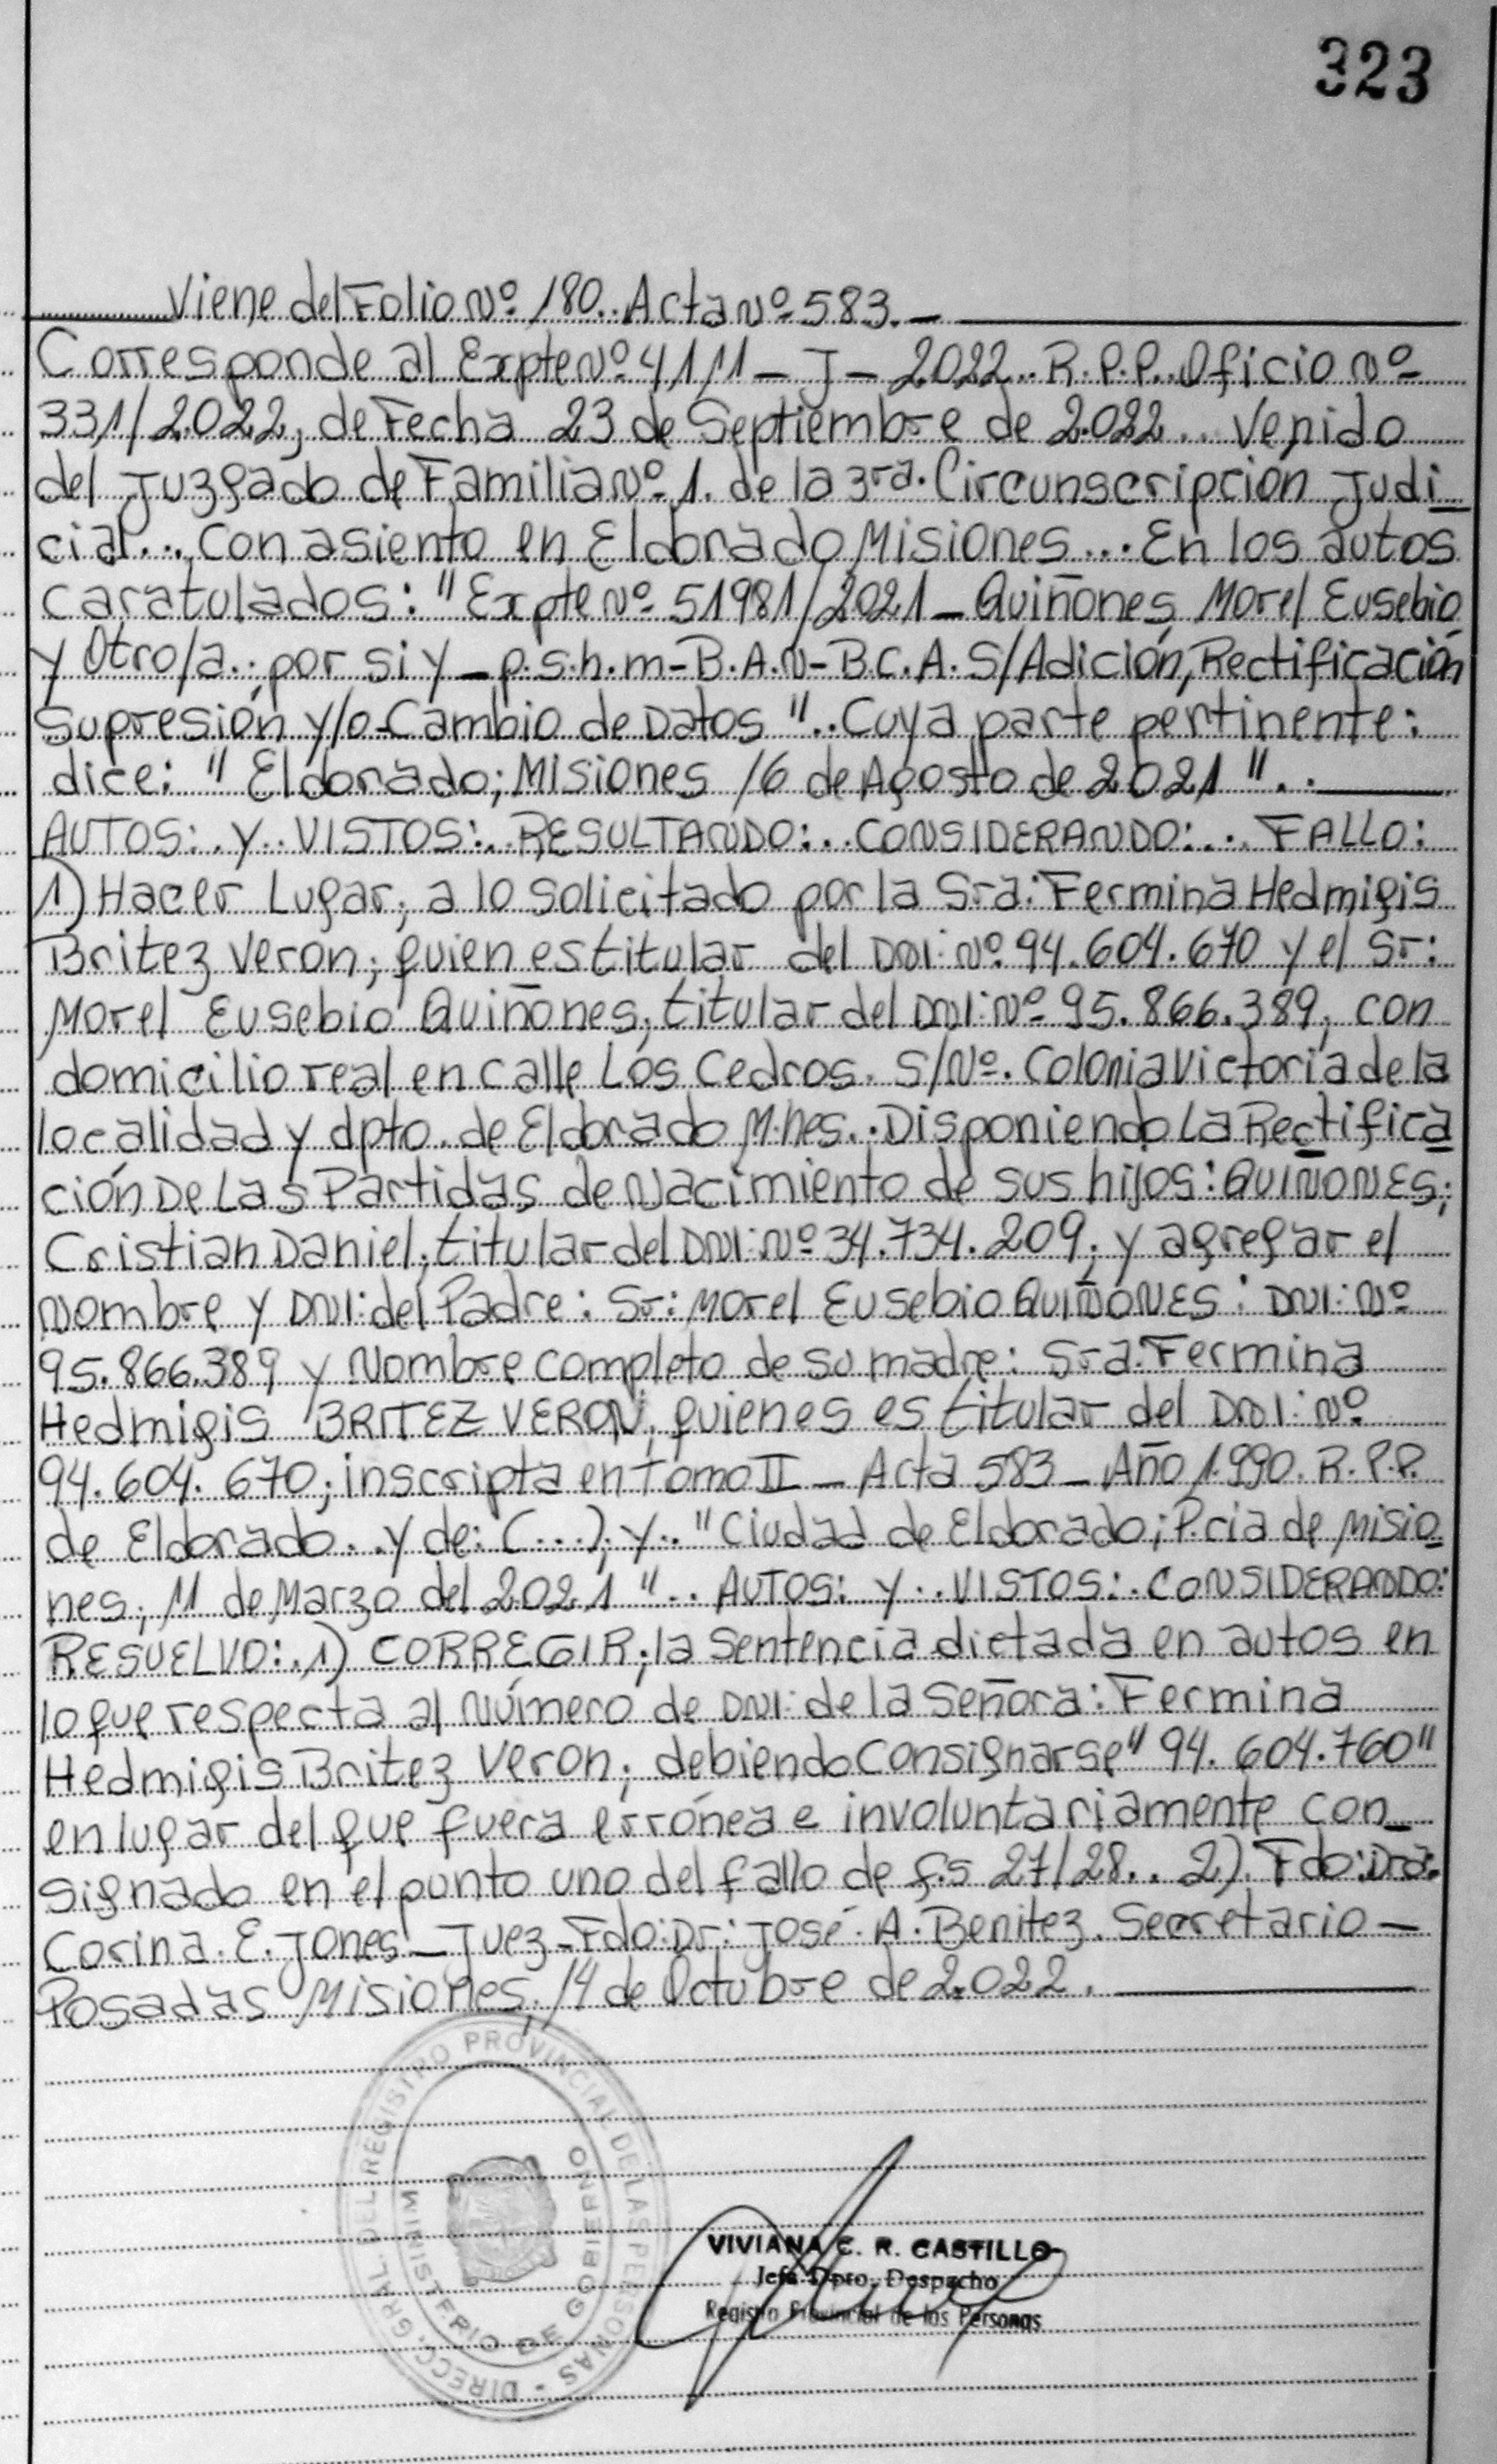 323
Viene del Folio Nº 180.. Acta Nº 583.-
Corresponde al Expte Nº 4111 - J - 2.022.. R.P.P. Oficio Nº
331/2.022, de Fecha 23 de Septiembre de 2.022... Venido
del Juzgado de Familia Nº 1. de la 3ra. Circunscripción Judi
cial... Con asiento en Eldorado, Misiones... En los autos
caratulados: "Expte Nº 51981/2021 - Quiñones, Morel Eusebio
y Otro/a.. por si y - p.s.h.m - B.A.N - B.C.A. S/Adición, Rectificación
Supresión y/o Cambio de Datos".. Cuya parte pertinente:
dice: "Eldorado; Misiones 16 de Agosto de 2021"..
AUTOS: Y.. VISTOS:.. RESULTANDO:.. CONSIDERANDO:... FALLO:
1) Hacer Lugar; a lo solicitado por la Sra: Fermina Hedmigis
Britez Veron; quien es titular del DNI: Nº 94.604.670 y el Sr:
Morel Eusebio Quiñones; titular del DNI: Nº 95.866.389, con
domicilio real en calle Los Cedros. S/Nº. Colonia Victoria de la
localidad y dpto. de Eldorado M.nes.. Disponiendo La Rectifica
ción De Las Partidas de Nacimiento de sus hijos: QUIÑONES;
Cristian Daniel; titular del DNI: Nº 34.734.209; y agregar el
Nombre y DNI: del Padre: Sr: Morel Eusebio QUIÑONES: DNI: Nº
95.866.389 y Nombre completo de su madre: Sra. Fermina
Hedmigis BRITEZ VERON; quienes es titular del DNI: Nº
94.604.670; inscripta en Tomo II - Acta 583 - Año 1.990. R.P.P.
de Eldorado.. y de: (...); y.. "Ciudad de Eldorado; P.cia de Misio
nes; 11 de Marzo del 2.021".. AUTOS: Y.. VISTOS:. CONSIDERANDO:
RESUELVO:. 1) CORREGIR; la Sentencia dictada en autos en
lo que respecta al Número de DNI: de la Señora: Fermina
Hedmigis Britez Veron; debiendo Consignarse "94.604.760"
en lugar del que fuera errónea e involuntariamente con
signado en el punto uno del fallo de f.s 27/28.. 2). Fdo: Dra.
Corina. E. Jones - Juez - Fdo: Dr: José. A. Benitez. Secretario -
Posadas Misiones, 14 de Octubre de 2.022.
DIRECC. GRAL. DEL REGISTRO PROVINCIAL DE LAS PERSONAS -
MINISTERIO DE GOBIERNO
VIVIANA C. R. CASTILLO
Jefa Dpto. Despacho
Registro Provincial de las Personas